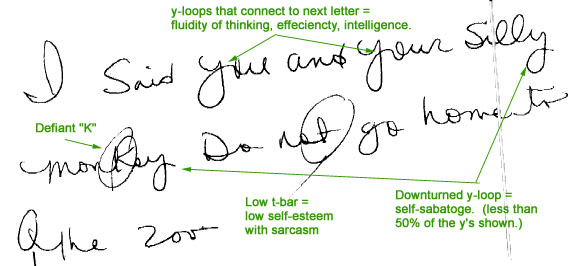 y-loops that connect to next letter =
fluidity of thinking, effeciencty, intelligence.
I said you and your silly
Defiant "K"
monKey Do not go home to
Low t-bar =
low self-esteem
with sarcasm
Downturned y-loop =
self-sabatoge. (less than
50% of the y's shown.)
the zoo